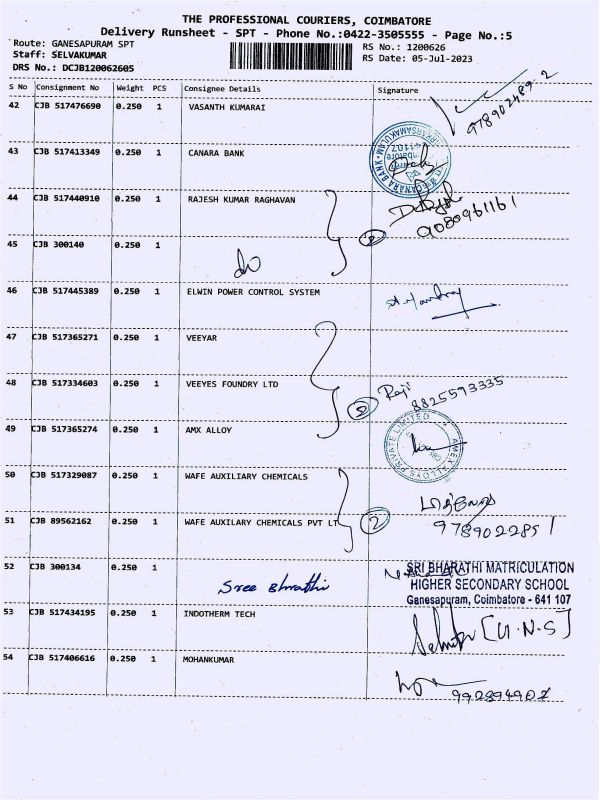 THE PROFESSIONAL COURIERS, COIMBATORE
Delivery Runsheet - SPT - Phone No.:0422-3505555 - Page No.:5
Route: GANESAPURAM SPT
Staff: SELVAKUMAR
DRS No.: DCJB120062605
RS No.: 1200626
RS Date: 05-Jul-2023
S No Consignment No Weight PCS Consignee Details Signature
42 CJB 517476690 0.250 1 VASANTH KUMARAI
43 CJB 517413349 0.250 1 CANARA BANK
44 CJB 517440910 0.250 1 RAJESH KUMAR RAGHAVAN
9080961161
45 CJB 300140 0.250 1
do
46 CJB 517445389 0.250 1 ELWIN POWER CONTROL SYSTEM
47 CJB 517365271 0.250 1 VEEYAR
48 CJB 517334603 0.250 1 VEEYES FOUNDRY LTD
Raji
8825593335
49 CJB 517365274 0.250 1 AMX ALLOY
AMEX ALLOYS PRIVATE LIMITED
50 CJB 517329087 0.250 1 WAFE AUXILIARY CHEMICALS
51 CJB 89562162 0.250 1 WAFE AUXILARY CHEMICALS PVT LT
2
9789022851
52 CJB 300134 0.250 1
Sree Bharathi
SRI BHARATHI MATRICULATION
HIGHER SECONDARY SCHOOL
Ganesapuram, Coimbatore - 641 107
53 CJB 517434195 0.250 1 INDOTHERM TECH
[U.N.S]
54 CJB 517406616 0.250 1 MOHANKUMAR